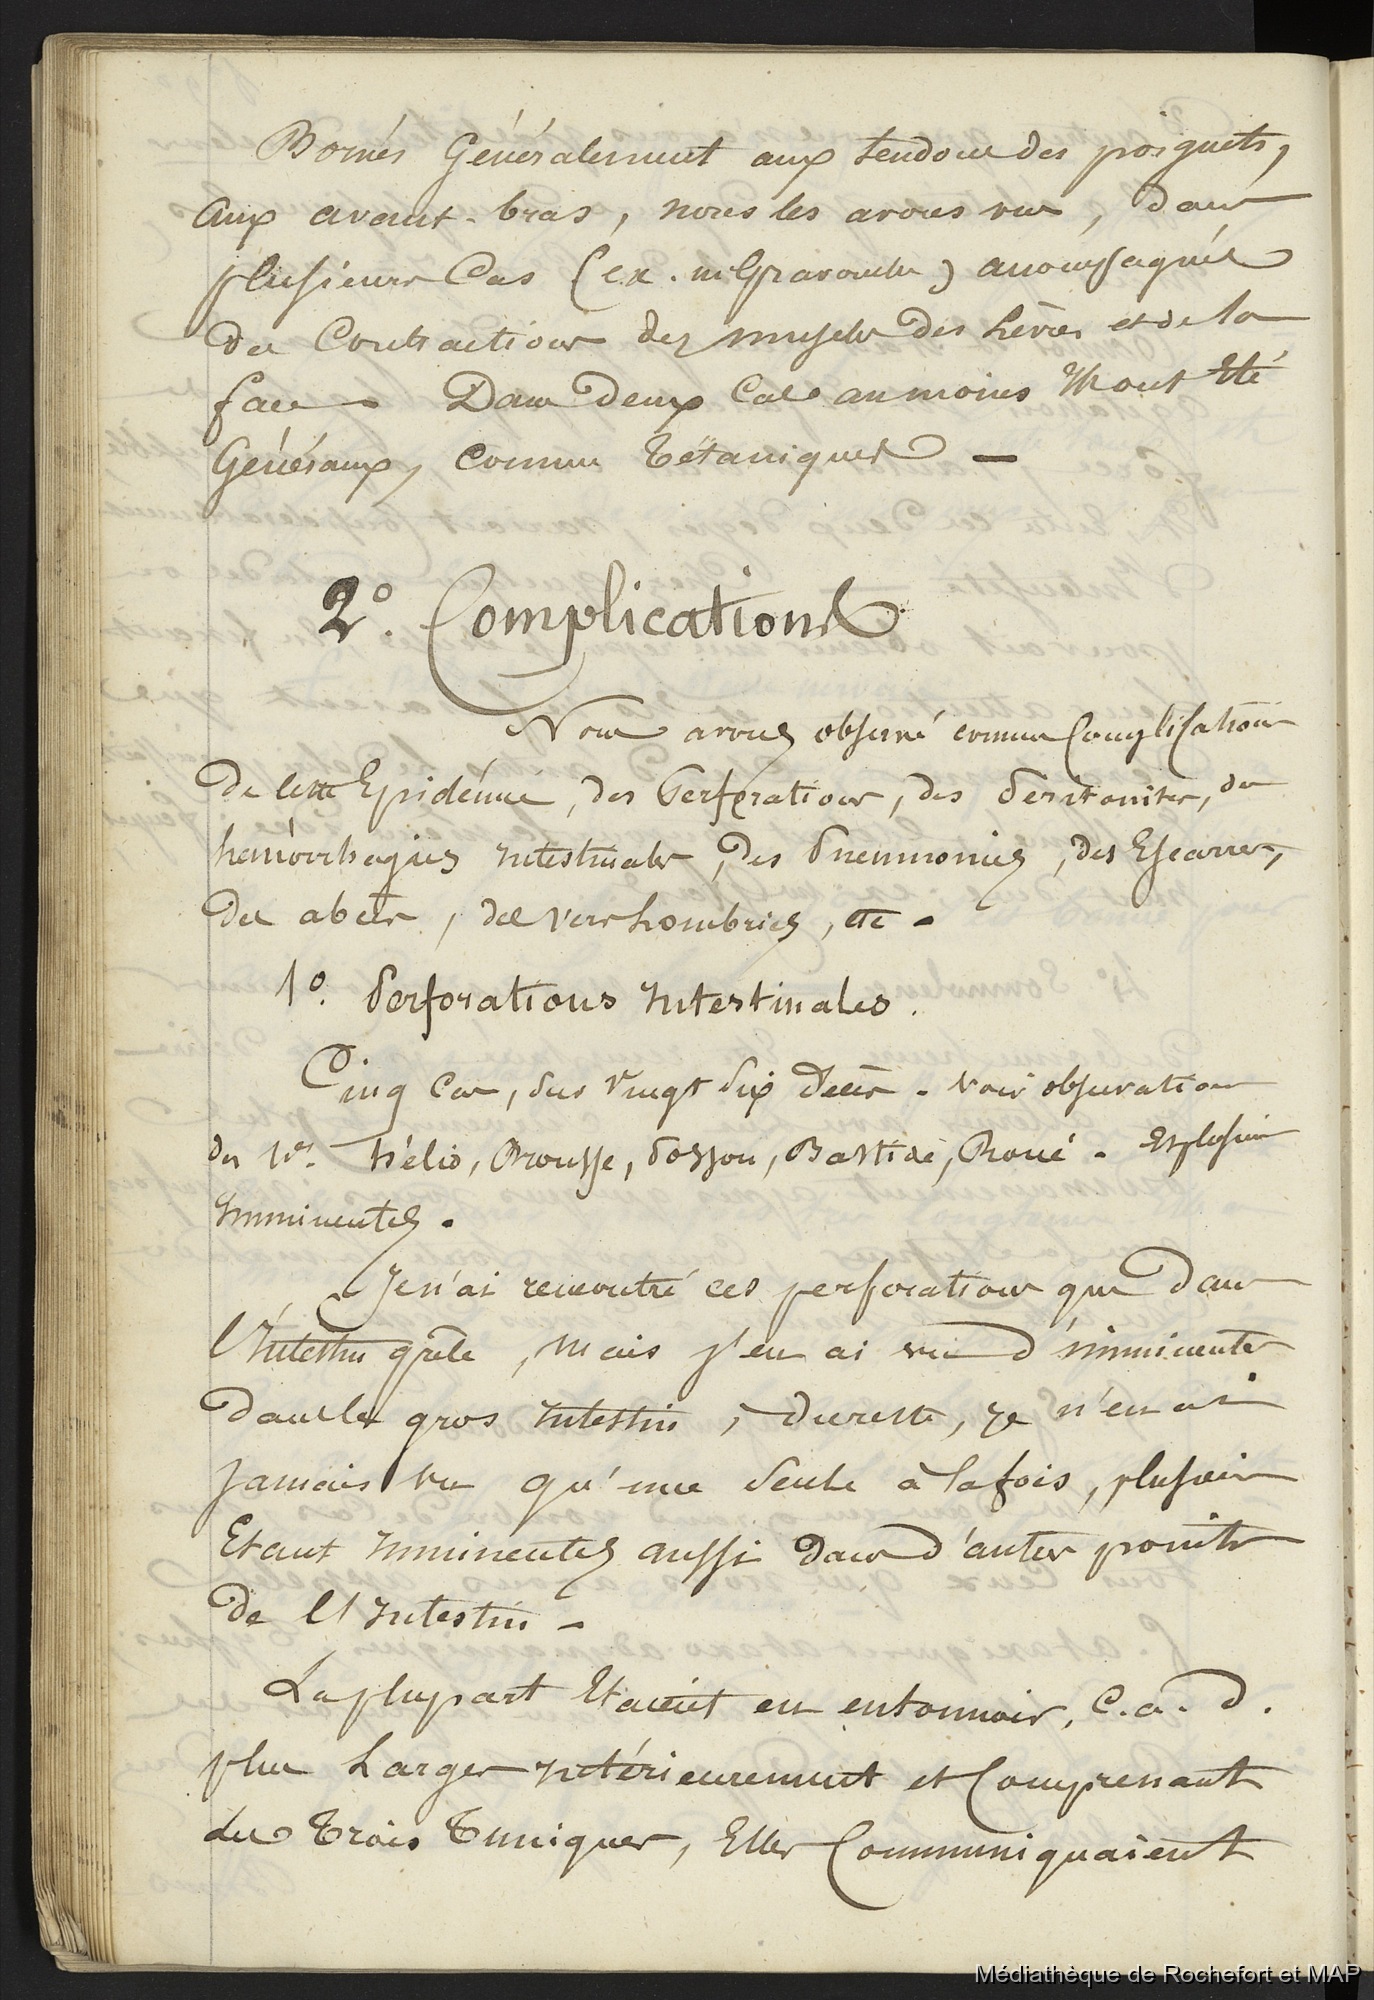 Bornés Généralement aux tendons des poignets,
aux avant-bras, nous les avons vus, dans
plusieurs Cas (ex. ) accompagnés
des Contractions des muscles des Lèvres et de la
face - Dans deux Cas au moins Ils ont Eté
Généraux, comme Tétaniques -
2° Complications
Nous avons observé comme Complications
de cette Epidémie, des Perforations, des Péritonites, des
hémorrhagies intestinales, des Pneumonies, des Escarres,
des abcès, des vers Lombrics, etc -
1° Perforations intestinales.
Cinq Cas, sur vingt six Décès - voir observations
des Nos. Hélio, Brousse, Posson, Bastide, Roué - plusieurs
imminentes.
Je n'ai rencontré ces perforations que dans
l'intestin grêle, mais j'en ai vu d'imminentes
dans le gros intestin, du reste, je n'en ai
jamais vu qu'une seule à la fois, plusieurs
Etant imminentes aussi dans d'autres points
de l'Intestin -
La plupart Etaient en entonnoir, C.a.d.
plus Larges intérieurement et Comprenant
les Trois Tuniques, Elles Communiquaient
Médiathèque de Rochefort et MAP